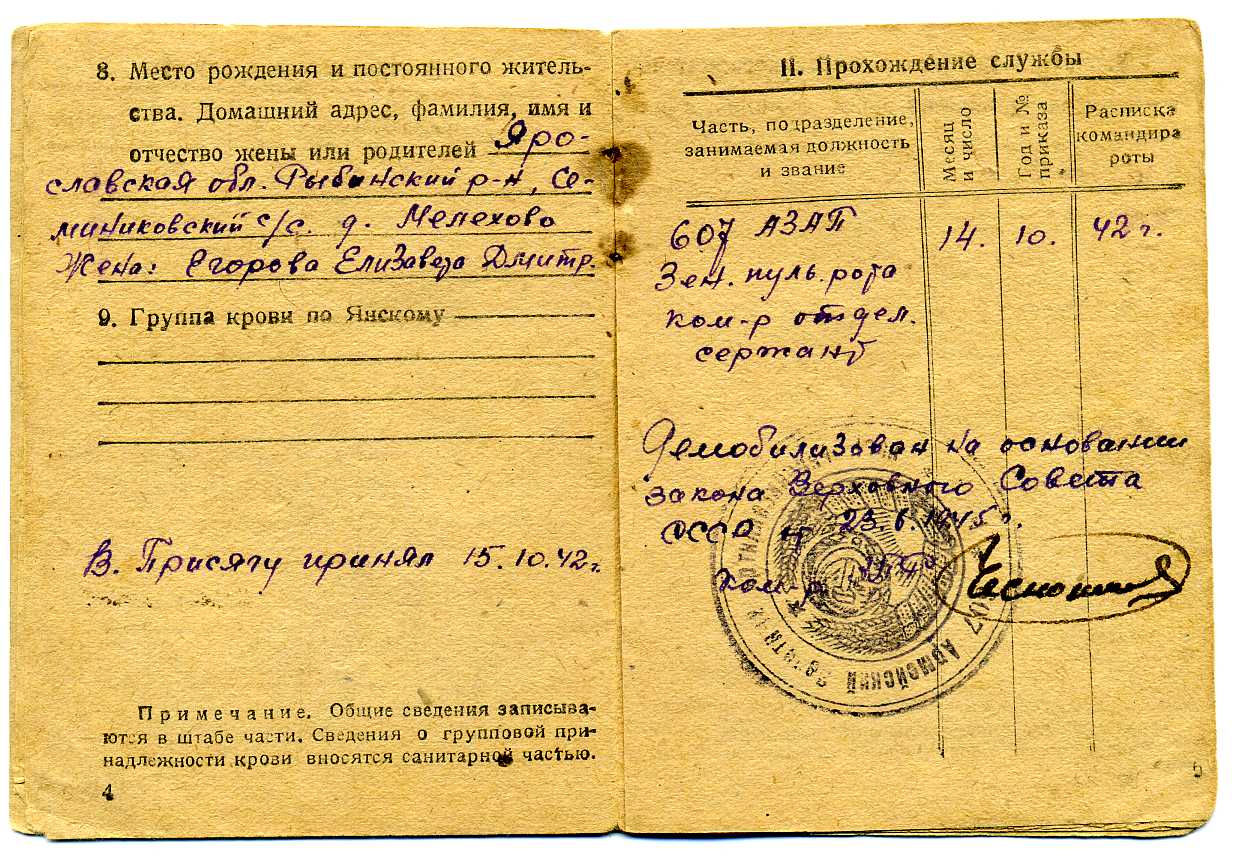 8. Место рождения и постоянного житель-
ства. Домашний адрес, фамилия, имя и
отчество жены или родителей Яро-
славская обл. Рыбинский р-н, Се-
миниковский с/с. д. Мелехово
Жена: Егорова Елизавета Дмитр.
9. Группа крови по Янскому
В. Присягу принял 15.10.42 г.
Примечание. Общие сведения записыва-
ются в штабе части. Сведения о групповой при-
надлежности крови вносятся санитарной частью.
4
II. Прохождение службы
Часть, подразделение,
занимаемая должность
и звание
Месяц
и число
Год и №
приказа
Расписка
командира
роты
607 АЗАП 14. 10. 42 г.
Зен. пуль. рота
ком-р отдел.
сержант
Демобилизован на основании
закона Верховного Совета
СССР от 23.6.1945 г.
Ком-р
Армейский
5